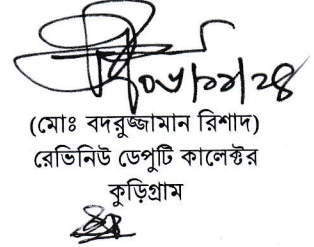 ০৬/১১/২৪
(মোঃ বদরুজ্জামান রিশাদ)
রেভিনিউ ডেপুটি কালেক্টর
কুড়িগ্রাম